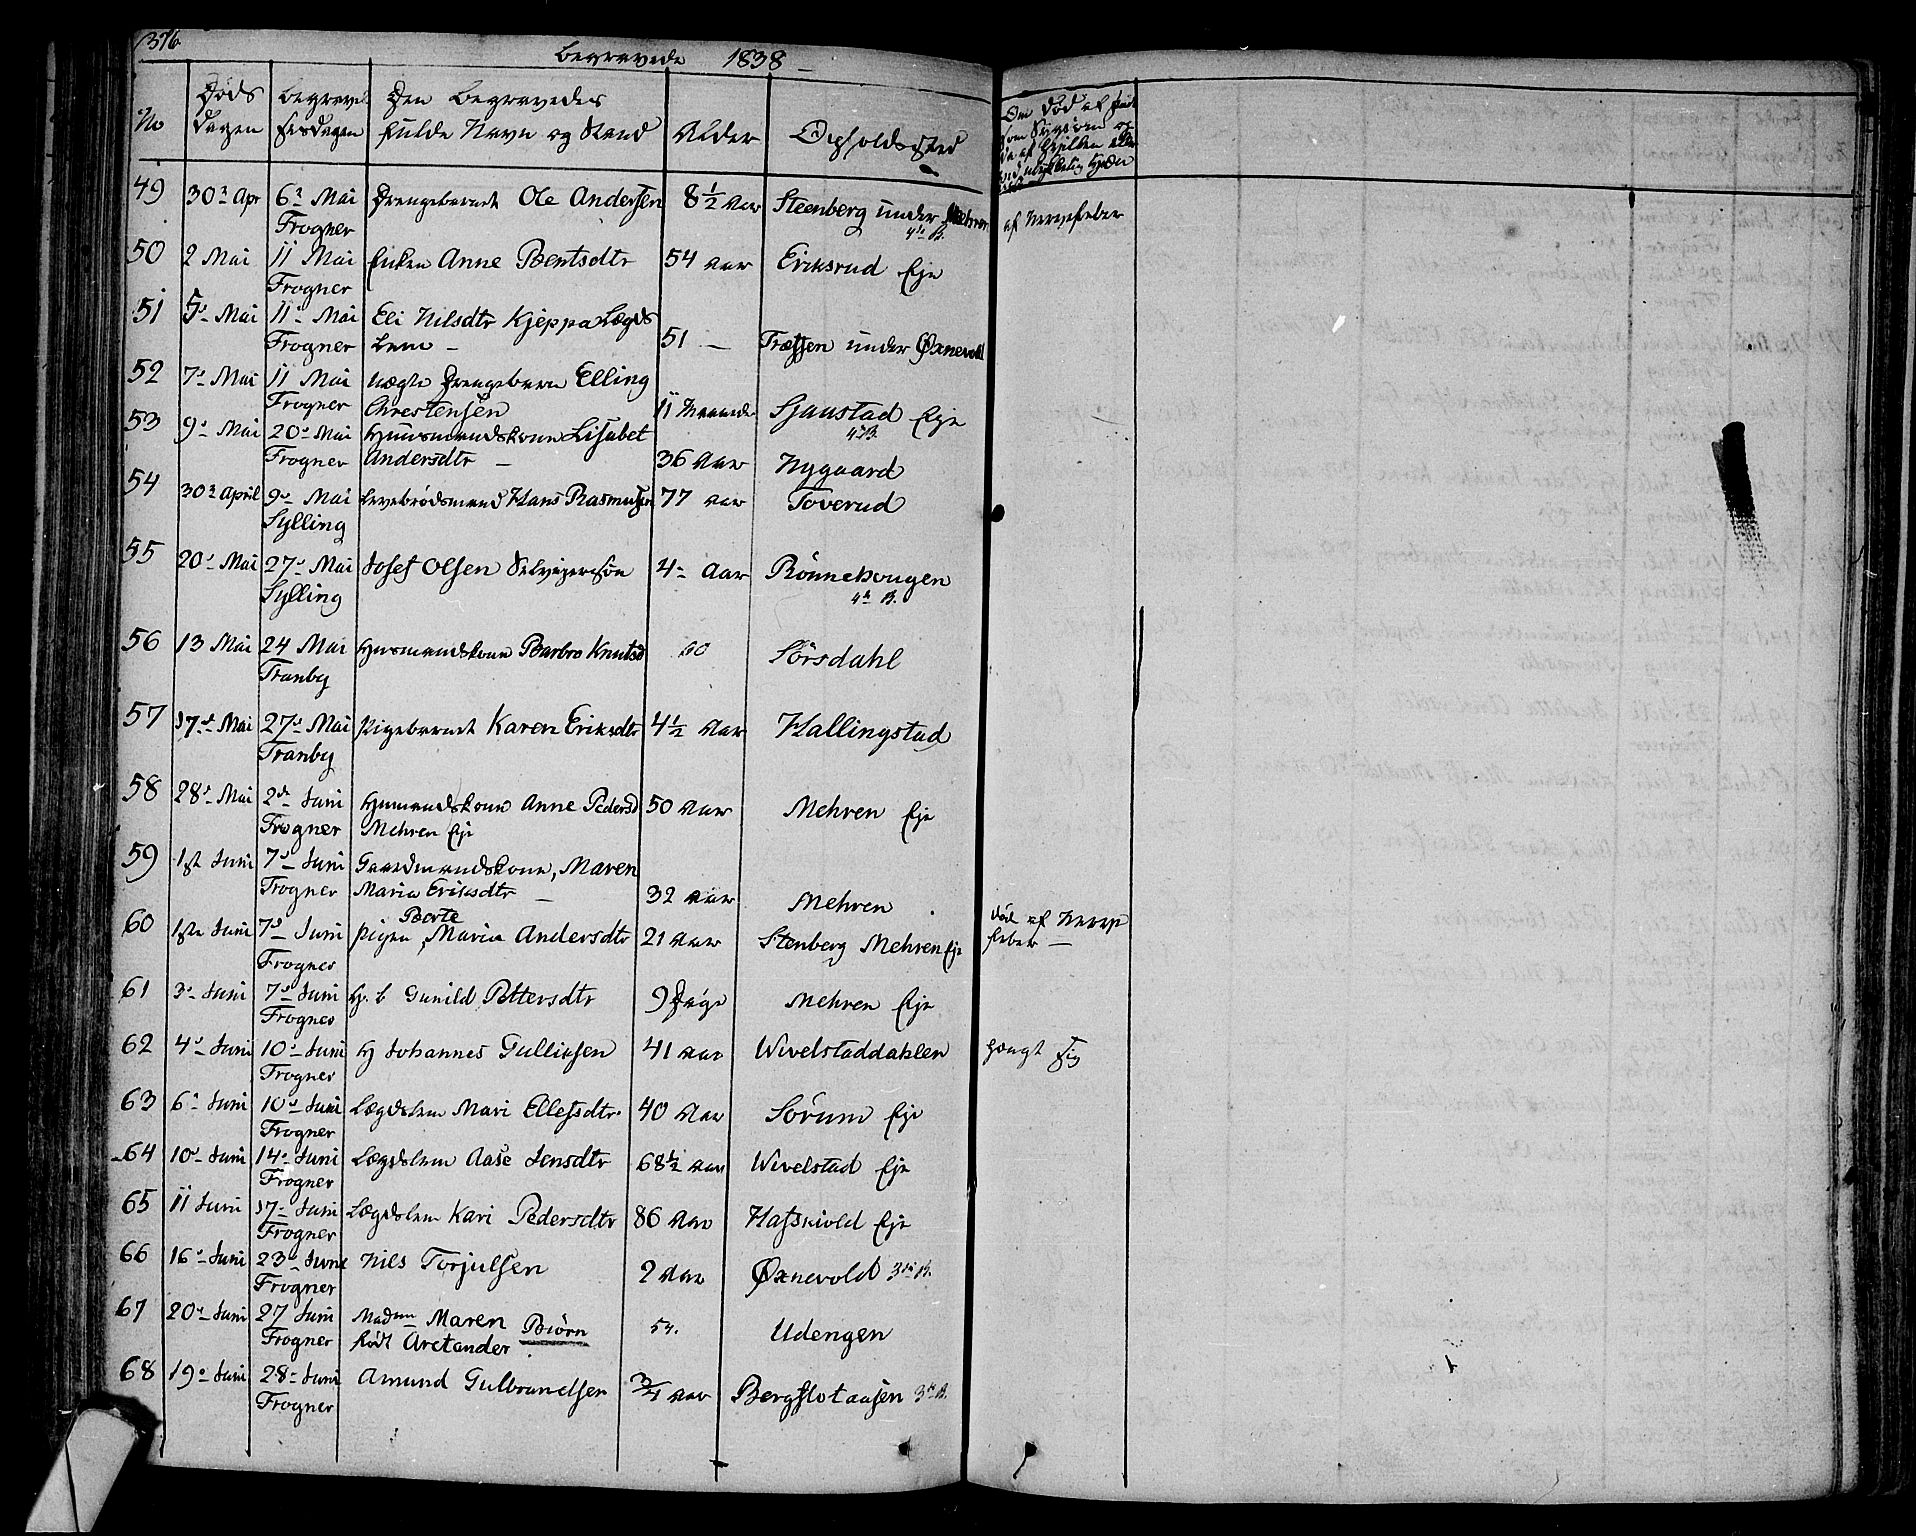 376
Begravede 1838
No
Døds Dagen
Begravelsesdagen
Den Begravedes fulde Navn og Stand
Alder
Opholdssted
Om død af
som Sygdom og
49 30 Apr 6 Mai Frogner Drengebarnet Ole Andersen 8½ Aar Steenberg under Mehren 4de B. af Nervefeber
50 2 Mai 11 Mai Frogner Enken Anne Bentsdtr 54 Aar Eriksrud Eje
51 5 Mai 11 Mai Frogner Eli Nilsdtr Kjeppa Lægdslem – 51 – Træssen under Øxnevold
52 7 Mai 11 Mai Frogner uægte Drengebarn Elling Chrestensen 11 Maaneder Sjaastad Eje 4 B.
53 9 Mai 20 Mai Frogner Huusmandskone Lisabet Andersdtr – 36 Aar Nygaard
54 30 April 9 Mai Sylling Levebrødsmand Hans Rasmussen 77 Aar Toverud
55 20 Mai 27 Mai Sylling Josef Olsen Selvejersøn 4 Aar Rönnehougen 4de B.
56 13 Mai 24 Mai Tranby Husmandskone Barbro Knutsd 60 Sörsdahl
57 17 Mai 27 Mai Tranby Pigebarnet Karen Eriksdtr 4½ Aar Hallingstad
58 28 Mai 2 Juni Frogner Husmandskone Anne Pedersd Mehren Eje 50 Aar Mehren Eje
59 1st Juni 7 Juni Frogner Gaardmandskone, Maren Maria Eriksdtr – 32 Aar Mehren
60 1ste Juni 7 Juni Frogner Pigen Berte Maria Andersdtr 21 Aar Stenberg Mehren Eje død af Nervefeber –
61 3 Juni 7 Juni Frogner H. b Gunild Pettersdtr 9 Dage Mehren Eje
62 4 Juni 10 Juni Frogner H Johannes Gulliksen 41 Aar Wivelstaddahlen hængt sig
63 6 Juni 10 Juni Frogner Lægdslem Mari Ellefsdtr 40 Aar Sörum Eje
64 10 Juni 14 Juni Frogner Lægdslem Aase Jensdtr 68½ Aar Wivelstad Eje
65 11 Juni 17 Juni Frogner Lægdslem Kari Pedersdtr 86 Aar Hafsniold Eje
66 16 Juni 23 June Frogner Nils Torjulsen 2 Aar Øxnevold 3die B.
67 20 Juni 27 Juni Frogner Madm Maren Biörn født Arctander 54. Udengen
68 19 Juni 28 Juni Frogner Amund Gulbrandsen ¾ Aar Bergflotaasen 3de B.